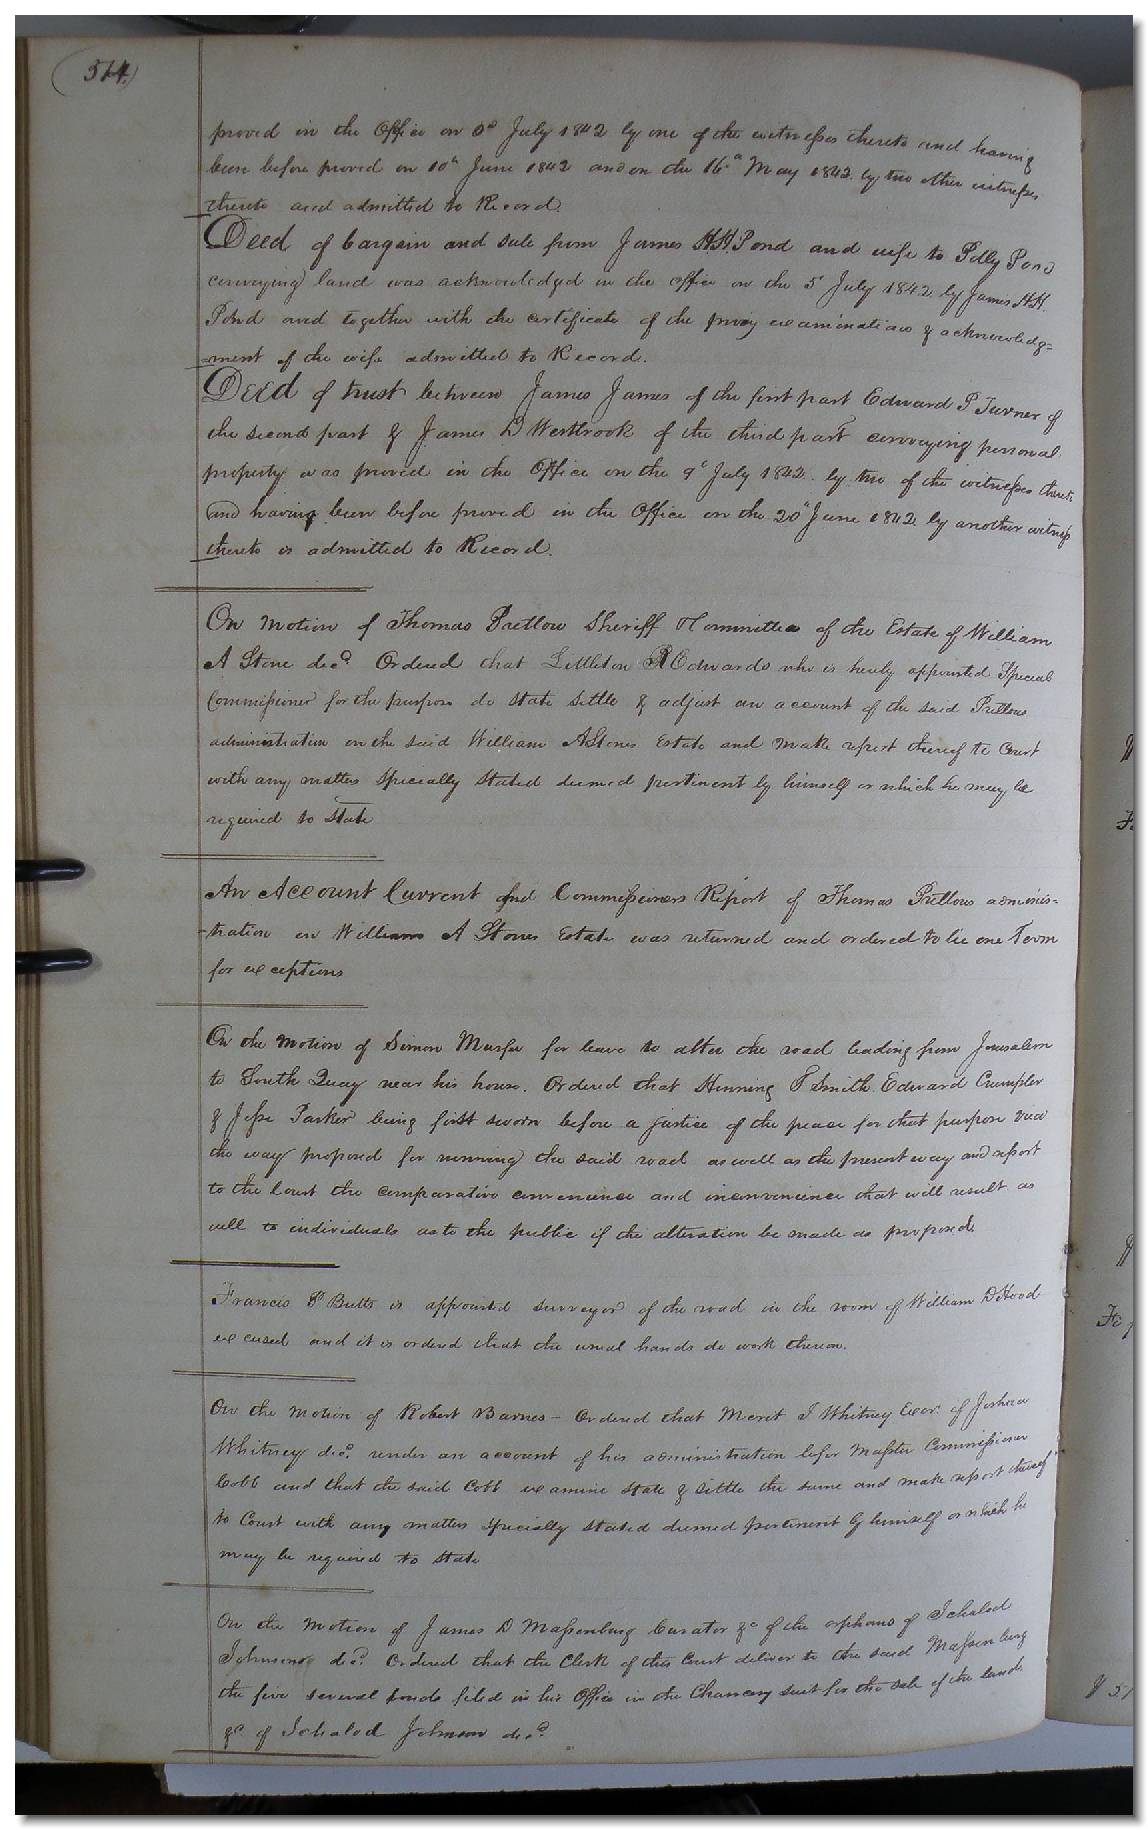 514.
proved in the Office on 5th July 1842 by one of the witnesses thereto and having
been before proved on 10th June 1842 and on the 16th May 1842 by two other witnesses
thereto and admitted to Record.
Deed of bargain and sale from James H.H. Pond and wife to Polly Pond
conveying land was acknowledged in the office on the 5th July 1842 by James H.H.
Pond and together with the certificate of the privy examination & acknowledg=
=ment of the wife admitted to Record.
Deed of trust between James James of the first part Edward P Turner of
the second part & James D Westbrook of the third part conveying personal
property was proved in the Office on the 9th July 1842. by two of the witnesses thereto
and having been before proved in the Office on the 20th June 1842 by another witness
thereto is admitted to Record.
On Motion of Thomas Pretlow Sheriff & Committee of the Estate of William
A Stone decd. Ordered that Littleton R Edwards who is hereby appointed Special
Commissioner for the purpose do state settle & adjust an account of the said Pretlows
administration on the said William A Stones Estate and make report thereof to Court
with any matters specially stated deemed pertinent by himself or which he may be
required to State
An Account Current and Commissioners Report of Thomas Pretlows adminis-
-tration on Williams A Stones Estate was returned and ordered to lie one Term
for exceptions
On the motion of Simon Murfee for leave to alter the road leading from Jerusalem
to South Quay near his house. Ordered that Henning T Smith Edward Crumpler
& Jesse Parker being first sworn before a justice of the peace for that purpose view
the way proposed for running the said road as well as the present way and report
to the Court the comparative convenience and inconvenience that will result as
well to individuals as to the public if the alteration be made as proposed.
Francis P Butts is appointed surveyor of the road in the room of William D Hood
excused and it is ordered that the usual hands do work thereon.
On the Motion of Robert Barnes - Ordered that Merit I Whitney Exor. of Joshua
Whitney decd. render an account of his administration before Master Commissioner
Cobb and that the said Cobb examine state & settle the same and make report thereof
to Court with any matters specially stated deemed pertinent by himself or which he
may be required to state
On the Motion of James D Massenburg Curator &c of the orphans of Ichabod
Johnson decd. Ordered that the Clerk of this Court deliver to the said Massenburg
the five several bonds filed in his Office in the Chancery suit for the sale of the lands
&c of Ichabod Johnson decd.